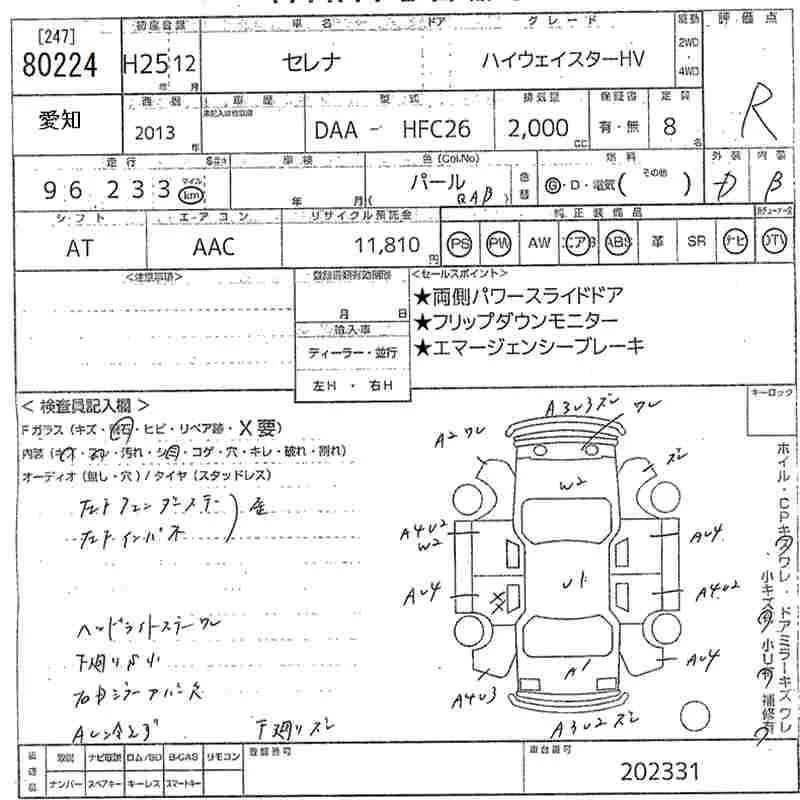 [247]
80224
初度登録
H25 12
年 月
車名 ドア グレード
セレナ ハイウェイスターHV
駆動
2WD
・
4WD
評価点
R
愛知
西暦
2013 年
車歴
型式
DAA - HFC26
排気量
2,000 CC
保証書
有・無
定員
8 名
走行
96 233
マイル
km
車検
年 月
色(Col.No)
パール
QAB
色替
燃料
G・D・電気( その他 )
外装
D
内装
B
シフト
AT
エアコン
AAC
リサイクル預託金
11,810 円
純正装備品
PS PW AW エアB ABS 革 SR ナビ DTV
<注意事項>
登録書類有効期限
月 日
輸入車
ディーラー・並行
左H ・ 右H
<セールスポイント>
★両側パワースライドドア
★フリップダウンモニター
★エマージェンシーブレーキ
キーロック
< 検査員記入欄 >
Fガラス (キズ・飛石・ヒビ・リペア跡・X要)
内装 (キズ・スレ・汚れ・シミ・コゲ・穴・キレ・破れ・割れ)
オーディオ (無し・穴) / タイヤ (スタッドレス)
ヘッドライトステーワレ
下廻りサビ小
下廻りズレ
A3U3ズレ
ワレ
A2ワレ
ズレ
W2
A4U2
W2
AU4
U1
AU4
XX
A4U2
A1
AU4
A4U3
A3U2ズレ
ホイル・CPキズワレ・ドアミラーキズワレ
小キズ有 小U有 補修有
装備品
取説 ナビ取説 ロム/SD B-CAS リモコン
ナンバー スペアキー キーレス スマートキー
登録番号
車台番号
202331